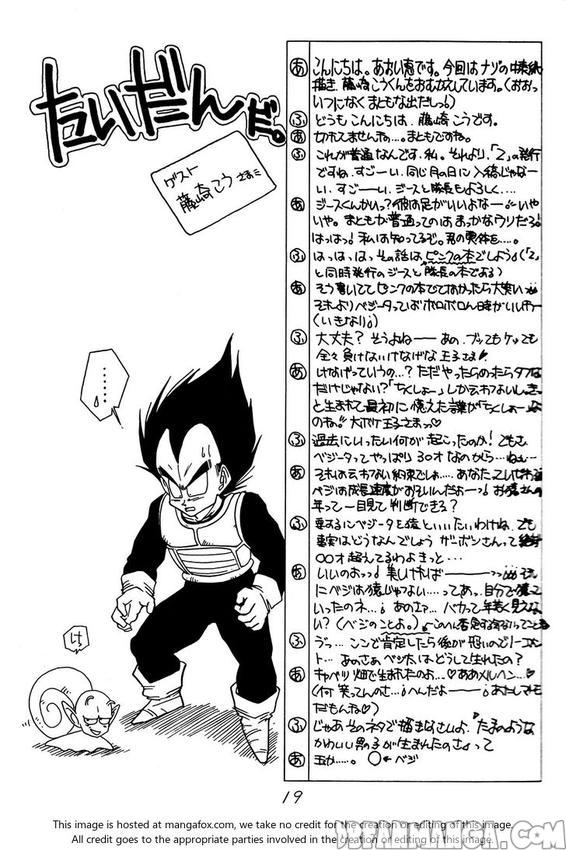 たいだんだ。
ゲスト
藤崎こうさま
……。
け
あ こんにちは。あおい恵です。今回はナゾの中表紙
描き、藤崎こうくんをおむかえしています。(おおっ
いつになくまともな出だしっ!)
ふ どうもこんにちは、藤崎こうです。
あ 切れてませんね…。まともですね。
ふ これが普通なんです、私。それより、「Z」の発行
ですね、すごーい、同じ月の日に入稿じゃなー
い、すごーい、ジースと隊長もよろしく…。
あ ジースくんかいっ?彼は足がいいよなー いや
いや。まともが普通ってのはまっかなウソだろ!
はっはっ!私は知ってるぞ。君の実体を…。
ふ はっはっはっ、その話はピンクの本でしよう!(「Z」
と同時発行のジースと隊長の本である)
あ そう書いてて
それよりベジータっていばボロボロん時かいいわー
(いきなり!)
ふ 大丈夫?そうよねー あの、ブってもケっても
全々負けないけなげな王子さま
あ けなげっていうの…?ただやったらめったらタフな
だけじゃない?「ちくしょー」しか云わないし
と生まれて最初に憶えた言葉が「ちくしょー」な
のね。大ボケ王子さまっ♡
ふ 過去にいったい何が起こったのか!でもさ、
ベジータってやっぱり30才なのかしら…ねェ
あ それは云わない約束でしょ…。あなた
ベジは成長速度がおそいんだよーっ! お猿さんの
年って一目見て判断できる?
ふ 要するにベジータを猿といいたいわけね、でも
事実はどうなんでしょう ザーボンさんって絶対
〇〇才超えてるわよきっと…
あ いいのおっっ!美しければ
にベジは猿じゃない……ってあっ、自分で猿って
いったのネ…! あのエァ… バカって年若く見えな
い?(ベジのことよ。)
ふ うっ…ここで肯定したら後が恐いのでノーコメン
ト…あのさぁ、ベジ太はどうして生れたの?
あ キャベツ畑で生まれたのよ…♡ああメルヘン…♡
(何笑ってんのさ…!へんだよー!あたしでも
だもんね♡)
ふ じゃあそのネタで描きなさいよ。たまのような
かわいい男の子が生まれたのさ♪って
あ 玉か……。 〇←ベジ
19
This image is hosted at mangafox.com, we take no credit for the creation or editing of this image.
All credit goes to the appropriate parties involved in the creation or editing of this image.